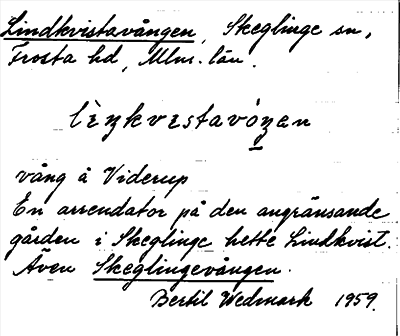 Lindkvistavången, Skeglinge sn,
Frosta hd, Mlm. län.
lìŋkvistavóŋen
vång å Viderup
En arrendator på den angränsande
gården i Skeglinge hette Lindkvist.
Även Skeglingevången.
Bertil Wedmark 1959.